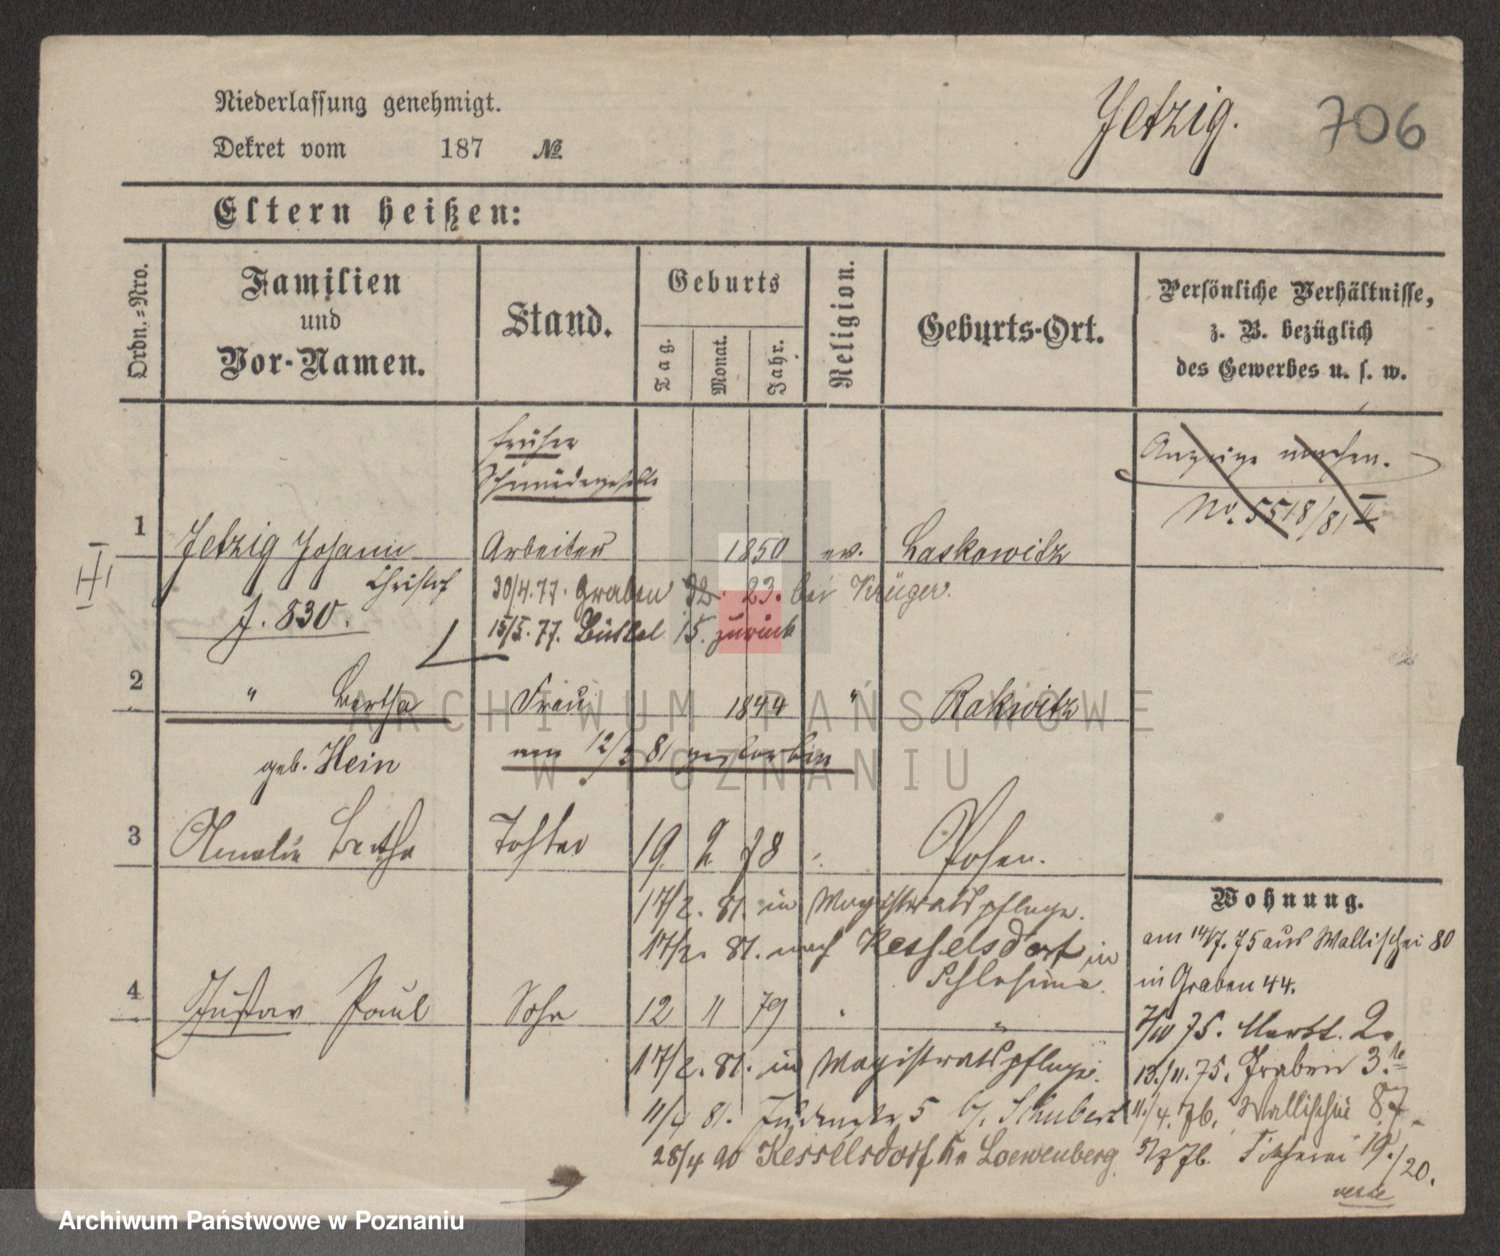 Niederlassung genehmigt.
Jetzig. 706
Dekret vom 187 №
Eltern heißen:
Ordn.-Nro.
Familien und Vor-Namen.
Stand.
Geburts
Tag. Monat. Jahr.
Religion.
Geburts-Ort.
Persönliche Verhältnisse,
z. B. bezüglich
des Gewerbes u. s. w.
früher
Schmiedegeselle
Anzeige machen.
No. 5518/81 II
1 Jetzig Johann Arbeiter 1850 ev. Laskowitz
Christof 30/4. 77. Graben 32. 23. bei Krüger.
J. 830. 15/5. 77. Büttel 15. zurück
2 " Bertha Frau 1844 " Rakwitz
geb. Hein am 12/3 81 gestorben
3 Amalie Bertha Tochter 19 2 78 " Posen.
17/2. 81. in Magistratspflege.
17/2. 81. nach Kesselsdorf in
Schlesien.
4 Gustav Paul Sohn 12 11 79 " "
17/2. 81. in Magistratspflege.
81. 5 Schubert
28/4 90 Kesselsdorf Kr Loewenberg
Wohnung.
am 14/7. 75 aus Wallischei 80
in Graben 44.
75. Markt. 2.
13./11. 75. Graben 3.
11./4. 76. Wallischei 87
76. 19./20.
ARCHIWUM PAŃSTWOWE
W POZNANIU
Archiwum Państwowe w Poznaniu